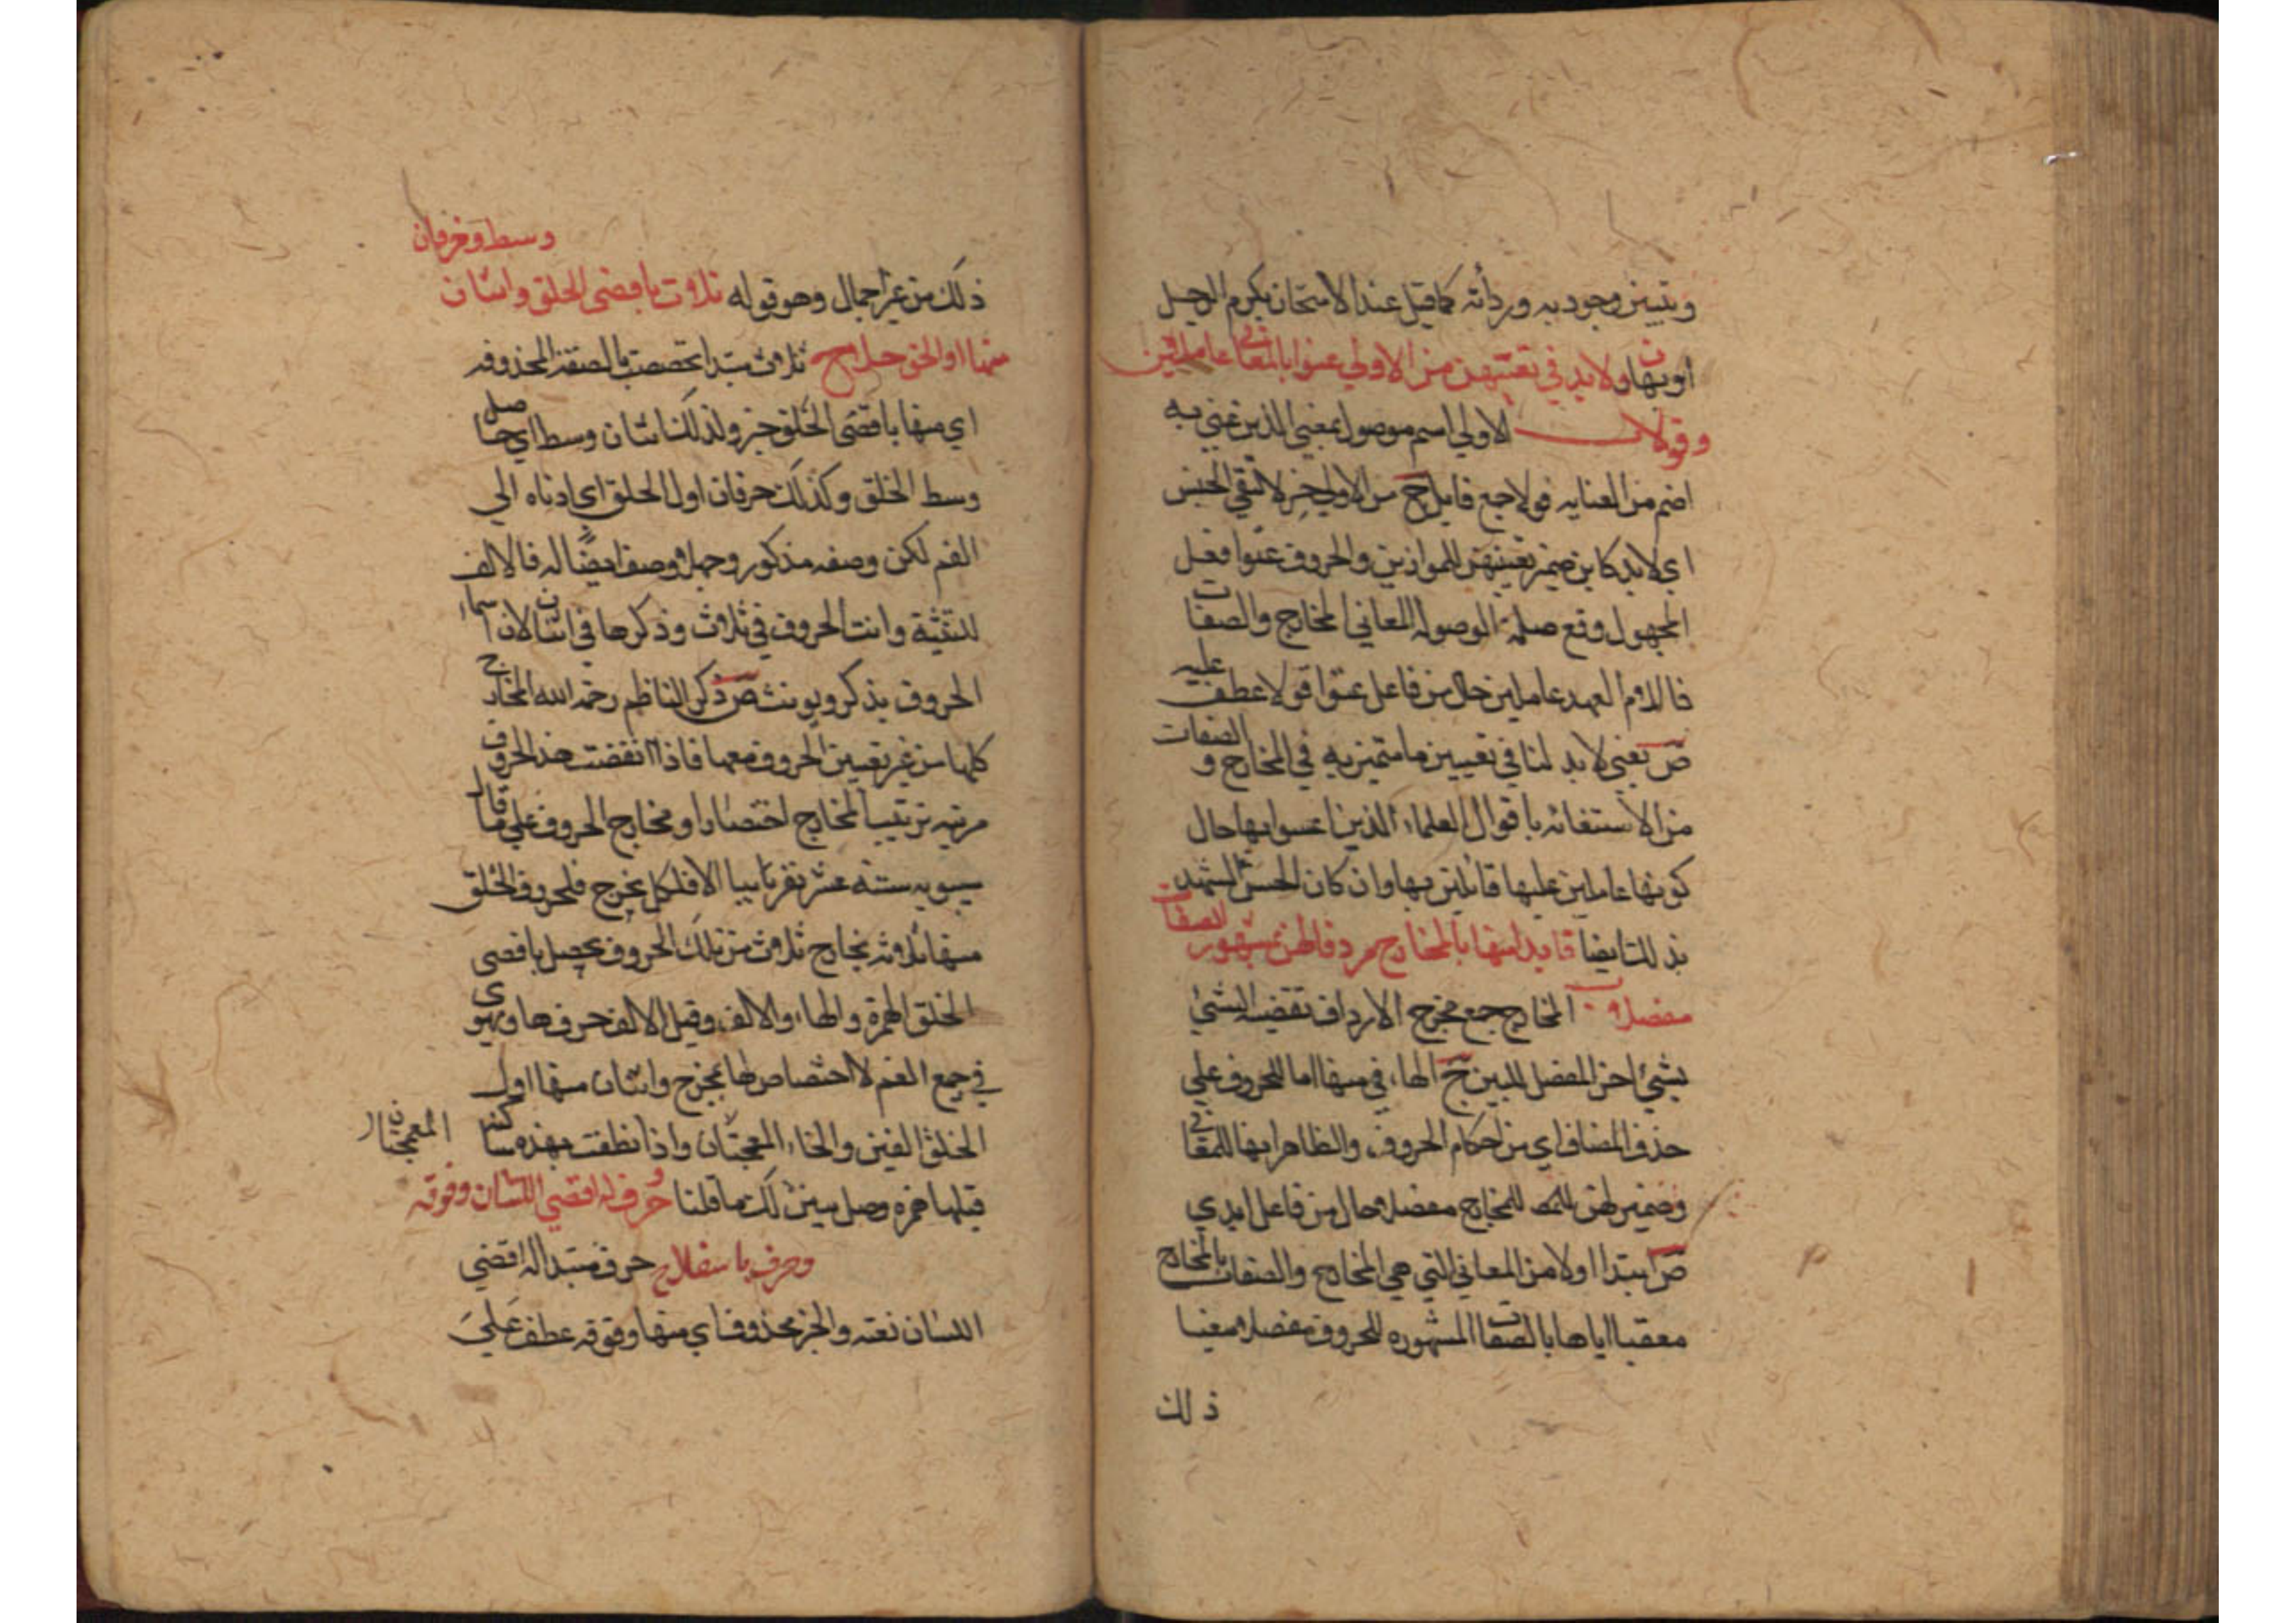 ويتبين وجود به ورداته كما قيل عند الامتحان يكرم الرجل
او يهان ولا بد في تعيينهن من الاولي عنوا بالمعاني عاملين
وقولا الاولي اسم موصول بمعني الذين عني به
من العنايه قولا جمع قايل ح من الاولي خبر لا لنفي الجنس
اي لا بد كاين ضمير تعيينهن للموازين والحروف عنوا فعل
المجهول وقع صلة الموصوله المعاني المخارج والصفات
فاللام العهد عاملين حال من فاعل عنوا قولا عطف عليه
ص يعني لا بد لنا في تعيين ما متميز به في المخارج و الصفات
من الاستغاثه باقوال العلماء الذين اعسوا بها حال
كونها عاملين عليها قائلين بها وان كان الحس
بذلك ايضا فابدا منها بالمخارج مردفا لهن بمشهور الصفات
مفصلا المخارج جمع مخرج الارداف تقضيه الشئ
بشئ اخر المفصل المبين ح الهاء في منها اما للحروف علي
حذف المضاف اي من احكام الحروف والظاهر انها للمعاني
وضمير لهن للمخارج مفصلا حال من فاعل ابدي
ص ابتدا اولا من المعاني التي هي المخارج والصفات بالمخارج
معقبا اياها بالصفات المشهوره للحروف مفصلا معينا
ذلك
وسط وحرفان
ذلك من غير اجمال وهو قوله ثلاث باقصى الحلق واثنان
منها اول الحلق جملا ح ثلاث مبتدا تخصصت بالصفة المحذوفه
اي منها باقصى الحلق خبر ولذلك اثنان وسط اي حاصل
وسط الحلق وكذلك حرفان اول الحلق اي ادناه الي
الفم لكن وصفه مذكور وجملا وصف ايضا له فالالف
للتثنية وانث الحروف في ثلاث وذكرها في اثنان لان اسماء
الحروف يذكر ويونث ص ذكر الناظم رحمه الله المخارج
كلها من غير تعيين الحروف معها فاذا انقضت هذ الحروف
مرتبه ترتيب المخارج اختصارا ومخارج الحروف علي ما قال
سيبويه ستة عشر تقريبا الا فلكل مخرج فلحروف الحلق
منها ثلاثه مخارج ثلاث من تلك الحروف يحصل باقصى
الحلق الهمزة والهاء والالف وقيل الالف حرف هاو يهوي
في جميع الفم لا اختصاص لها بمخرج واثنان منها اول
الحلق الغين والخاء المعجمتان واذا نطقت بهذه ساكنه المعجمتان
قبلها همزه وصل يبين لك ما قلنا حرف له اقصي اللسان وفوقه
وحرف باسفلا ح حرف مبتدا له اقصي
اللسان نعته والخبر محذوف اي منها وفوقه عطف علي